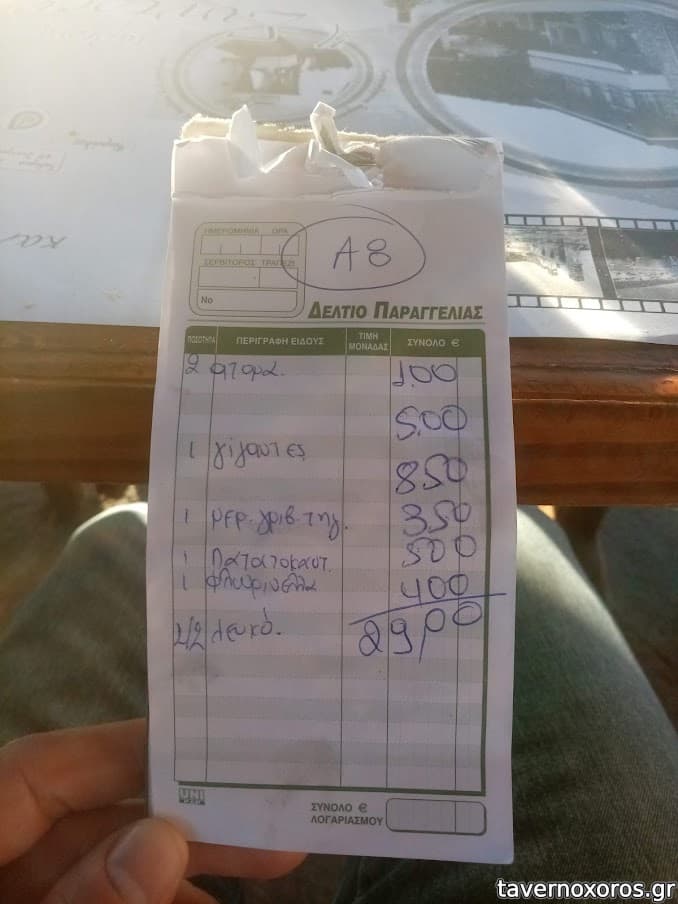 ΗΜΕΡΟΜΗΝΙΑ ΩΡΑ
ΣΕΡΒΙΤΟΡΟΣ ΤΡΑΠΕΖΙ
No
Α8
ΔΕΛΤΙΟ ΠΑΡΑΓΓΕΛΙΑΣ
ΠΟΣΟΤΗΤΑ ΠΕΡΙΓΡΑΦΗ ΕΙΔΟΥΣ ΤΙΜΗ ΜΟΝΑΔΑΣ ΣΥΝΟΛΟ €
2 ατομα. 1.00
5.00
1 γίγαντες
850
1 μερ. γριβ. τηγ. 350
1 Πατατοκαυτ. 500
1 400
1/2 λευκό. 29,00
UNI PAP
ΣΥΝΟΛΟ €
ΛΟΓΑΡΙΑΣΜΟΥ
tavernoxoros.gr